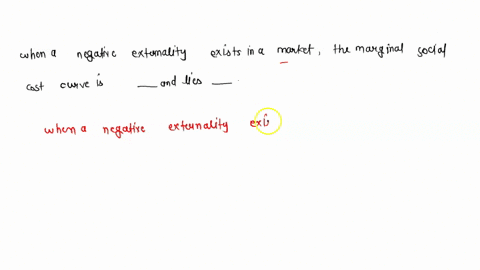 when a negative externality exists in a market, the marginal social
cost curve is ___ and lies ___.
when a negative externality exi